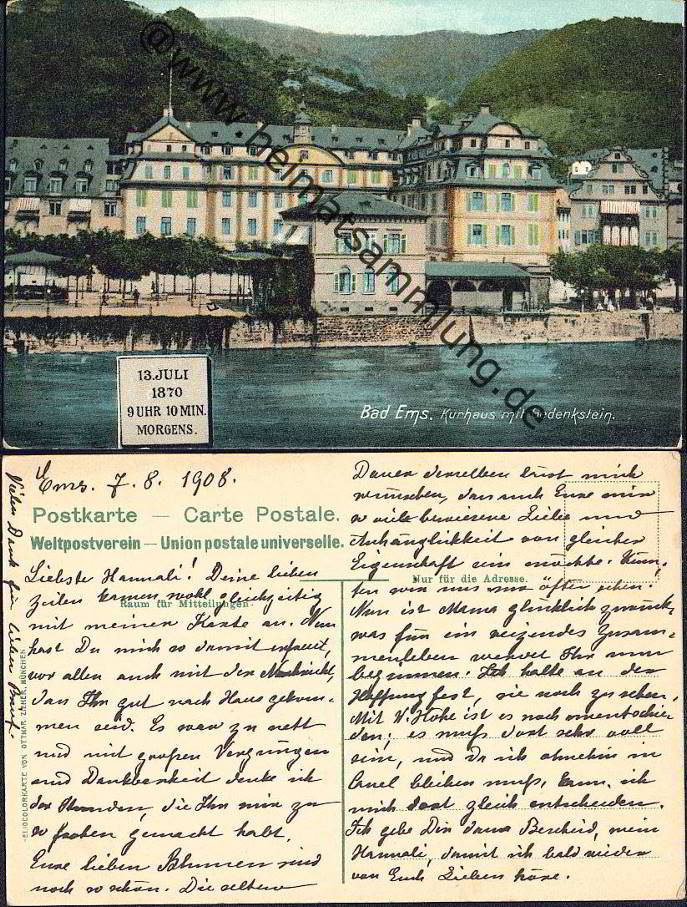 @www.heimatsammlung.de
13. JULI
1870
9 UHR 10 MIN.
MORGENS.
Bad Ems. Kurhaus mit Gedenkstein.
Ems. 7. 8. 1908.
Postkarte — Carte Postale.
Weltpostverein — Union postale universelle.
Raum für Mitteilungen.
Nur für die Adresse.
HELIOCOLORKARTE VON OTTMAR ZIEHER, MÜNCHEN
Vielen Dank für lieben Brief.
Liebste Hannali! Deine lieben
Zeilen kamen wohl gleichzeitig
mit meiner Karte an. Nun
hast Du mich so damit erfreut,
vor allen auch mit der Nachricht,
dass Ihr gut nach Haus gekom-
men seid. Es war zu nett
und mit großem Vergnügen
und Dankbarkeit denke ich
der Stunden, die Ihr mir zu
so frohen gemacht habt.
Eure lieben Blumen sind
noch so schön. Die seltene
Dauer derselben lässt mich
wünschen, dass auch Eure mir
so viele bewiesene Liebe und
Anhänglichkeit von gleicher
Eigenschaft sein möchte. Könn-
ten wir uns nur öfter sehen.
Nun ist Mama glücklich zurück,
was für ein reizendes Zusam-
menleben werdet Ihr nun
beginnen. Ich halte an der
Hoffnung fest, sie noch zu sehen.
Mit W. Höhe ist es noch unentschie-
den; es muß dort sehr voll
sein, und da ich ohnehin in
Cassel bleiben muß, kann ich
mich dort gleich entscheiden.
Ich gebe Dir dann Bescheid, mein
Hannali, damit ich bald wieder
von Euch Lieben höre.